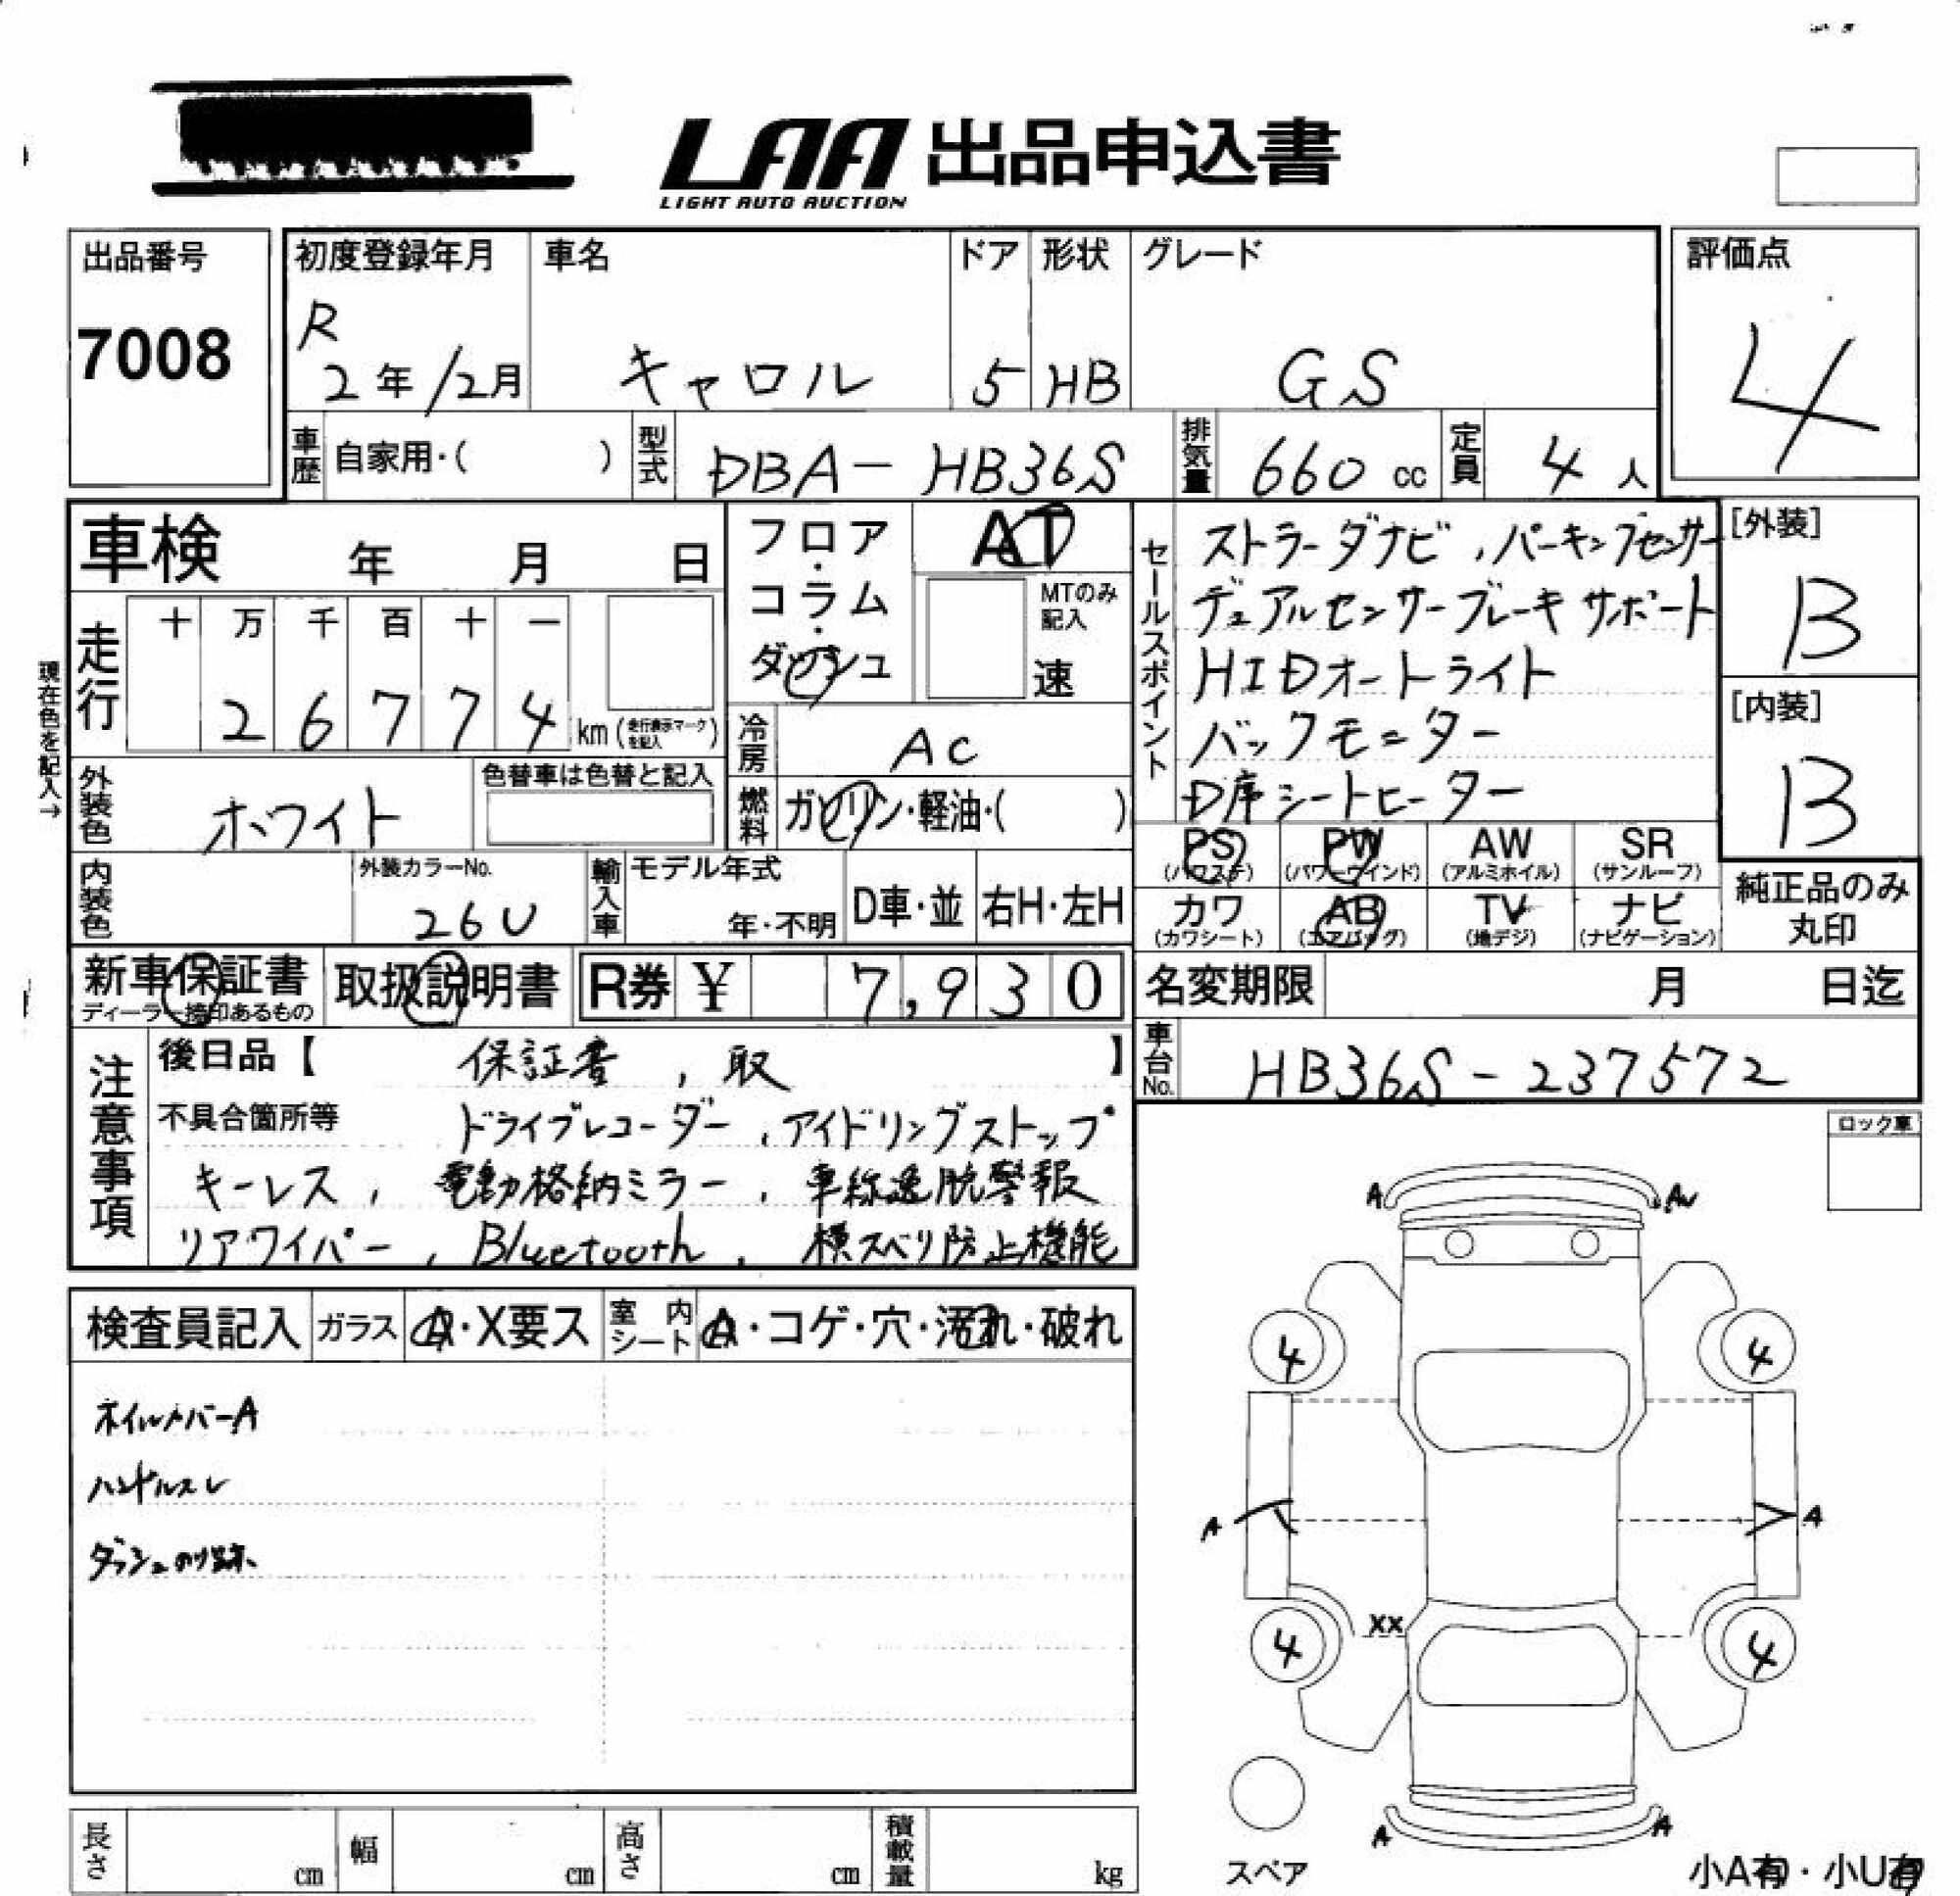 LAA 出品申込書
LIGHT AUTO AUCTION
出品番号
7008
初度登録年月
R
2年12月
車名
キャロル
ドア
5
形状
HB
グレード
GS
評価点
4
車歴 自家用・( )
型式 DBA-HB36S
排気量 660 cc
定員 4 人
車検 年 月 日
フロア・コラム・ダッシュ
AT
MTのみ記入
速
セールスポイント
ストラーダナビ、パーキングセンサー
デュアルセンサーブレーキサポート
HIDオートライト
バックモニター
D席シートヒーター
[外装]
B
[内装]
B
現在色を記入→
走行
十 万 千 百 十 一
2 6 7 7 4 km(走行表示マークを記入)
冷房 AC
外装色 ホワイト
色替車は色替と記入
燃料 ガソリン・軽油・( )
PS (パワステ)
PW (パワーウインド)
AW (アルミホイル)
SR (サンルーフ)
カワ (カワシート)
AB (エアバッグ)
TV (地デジ)
ナビ (ナビゲーション)
純正品のみ丸印
内装色
外装カラーNo.
26U
輸入車
モデル年式
年・不明
D車・並
右H・左H
新車保証書
ディーラー捺印あるもの
取扱説明書
R券 ¥ 7,930
名変期限 月 日迄
車台No. HB36S-237572
注意事項
後日品【 保証書、取 】
不具合箇所等 ドライブレコーダー、アイドリングストップ
キーレス、電動格納ミラー、車線逸脱警報
リアワイパー、Bluetooth、横スベリ防止機能
ロック車
検査員記入
ガラス A・X要ス
室内シート A・コゲ・穴・汚れ・破れ
ホイルカバーA
ハンドルスレ
ダッシュのり跡
A
A
4
4
A
A
XX
4
4
A
A
スペア
小A有・小U有
長さ cm
幅 cm
高さ cm
積載量 kg